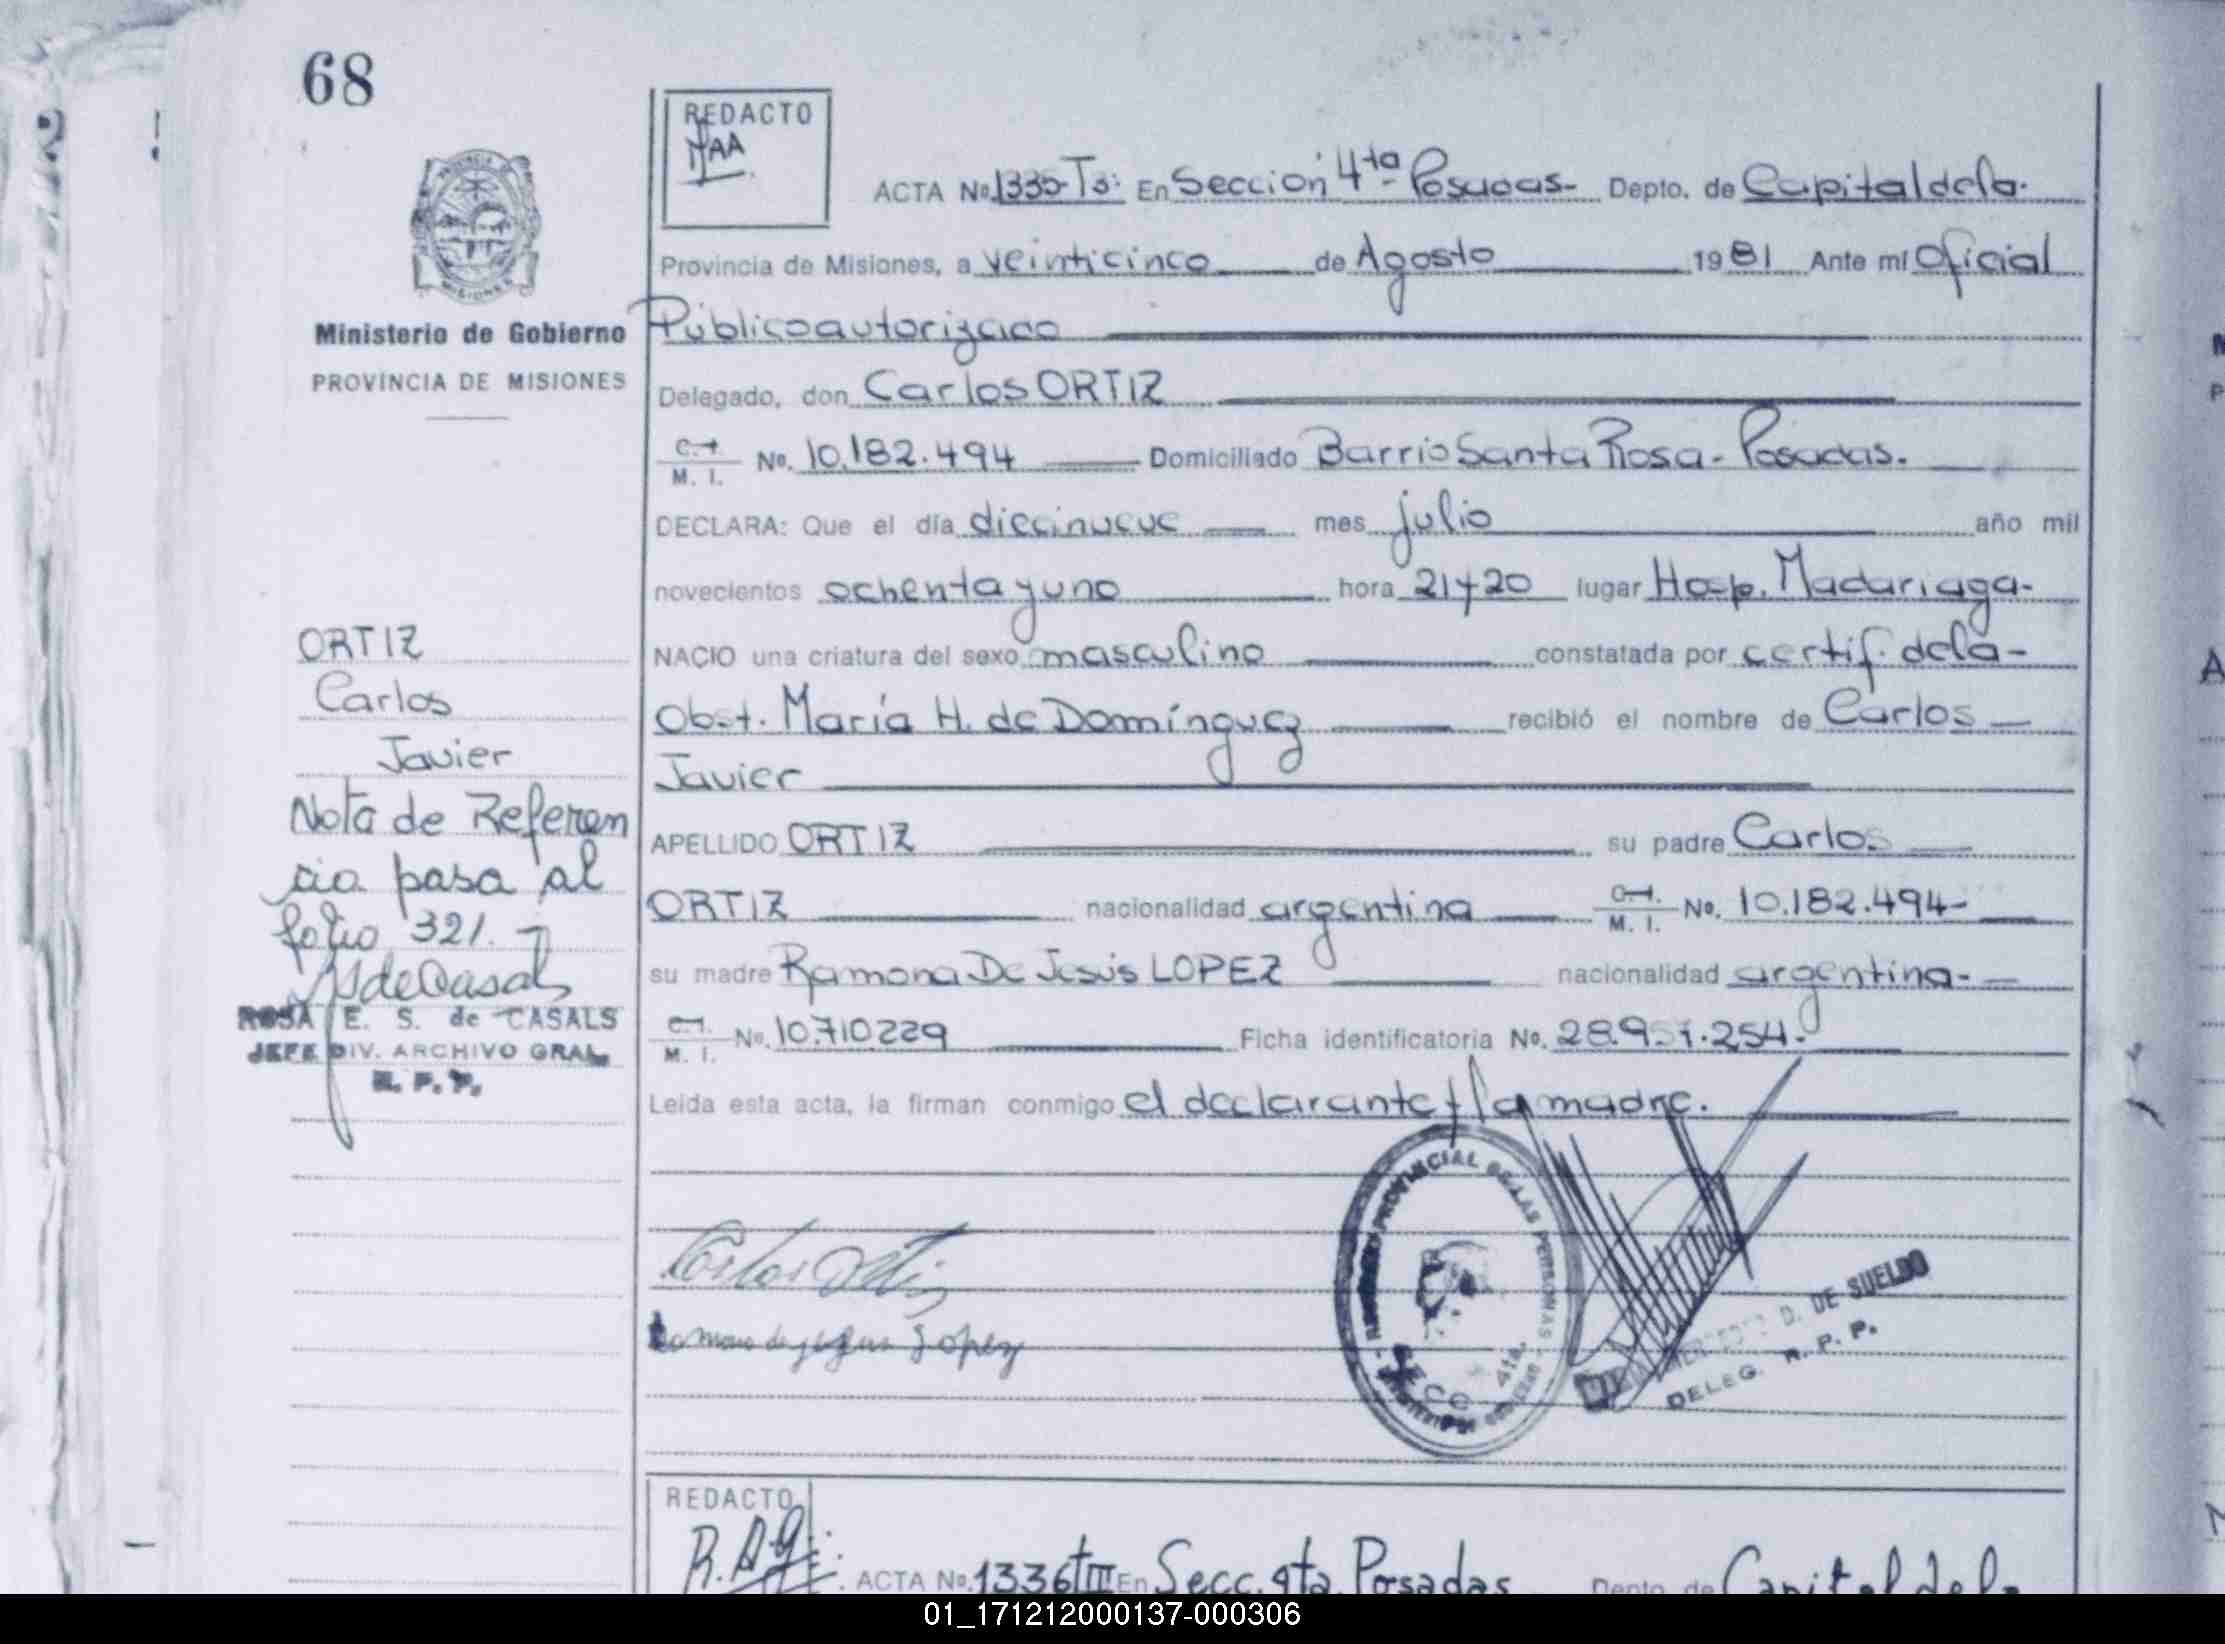 68
REDACTO
MAA
ACTA Nº 1335-T3: En Sección 4ta Posadas- Depto. de Capital de la
Provincia de Misiones, a veinticinco de Agosto 1981 Ante mí Oficial
Público autorizado
Delegado, don Carlos ORTIZ
C.I. M. I. Nº. 10.182.494 Domiciliado Barrio Santa Rosa - Posadas.
DECLARA: Que el día diecinueve mes julio año mil
novecientos ochenta y uno hora 21 y 20 lugar Hosp. Madariaga-
NACIO una criatura del sexo masculino constatada por certif. de la-
Obst. María H. de Domínguez recibió el nombre de Carlos
Javier
APELLIDO ORTIZ su padre Carlos
ORTIZ nacionalidad argentina C.I. M. I. Nº. 10.182.494-
su madre Ramona De Jesús LOPEZ nacionalidad argentina-
C.I. M. I. Nº. 10.710229 Ficha identificatoria Nº. 28.951.254.
Leída esta acta, la firman conmigo el declarante y la madre.
Ministerio de Gobierno
PROVINCIA DE MISIONES
ORTIZ
Carlos
Javier
Nota de Referen
cia pasa al
folio 321.
ROSA E. S. de CASALS
JEFE DIV. ARCHIVO GRAL.
R. P. P.
Carlos Ortiz
Ramona de jesus Lopez
PROVINCIAL DE LAS PERSONAS
SECC 4ta.
D. DE SUELDO
DELEG. R. P. P.
REDACTO
R.A.G.
ACTA Nº. 1336 t III En Secc. 4ta. Posadas Depto. de Capital de la
01_171212000137-000306